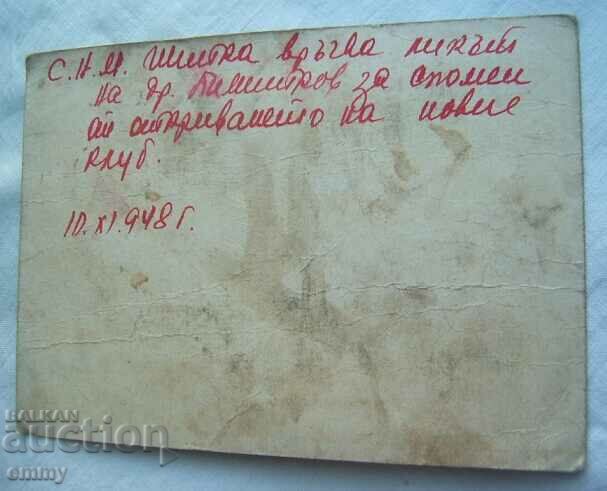 С.Н.М. Шипка връчва
на др. Димитров за спомен
от откриването на новие
клуб.
10.XI.948 г.
BALKAN
auction
emmy